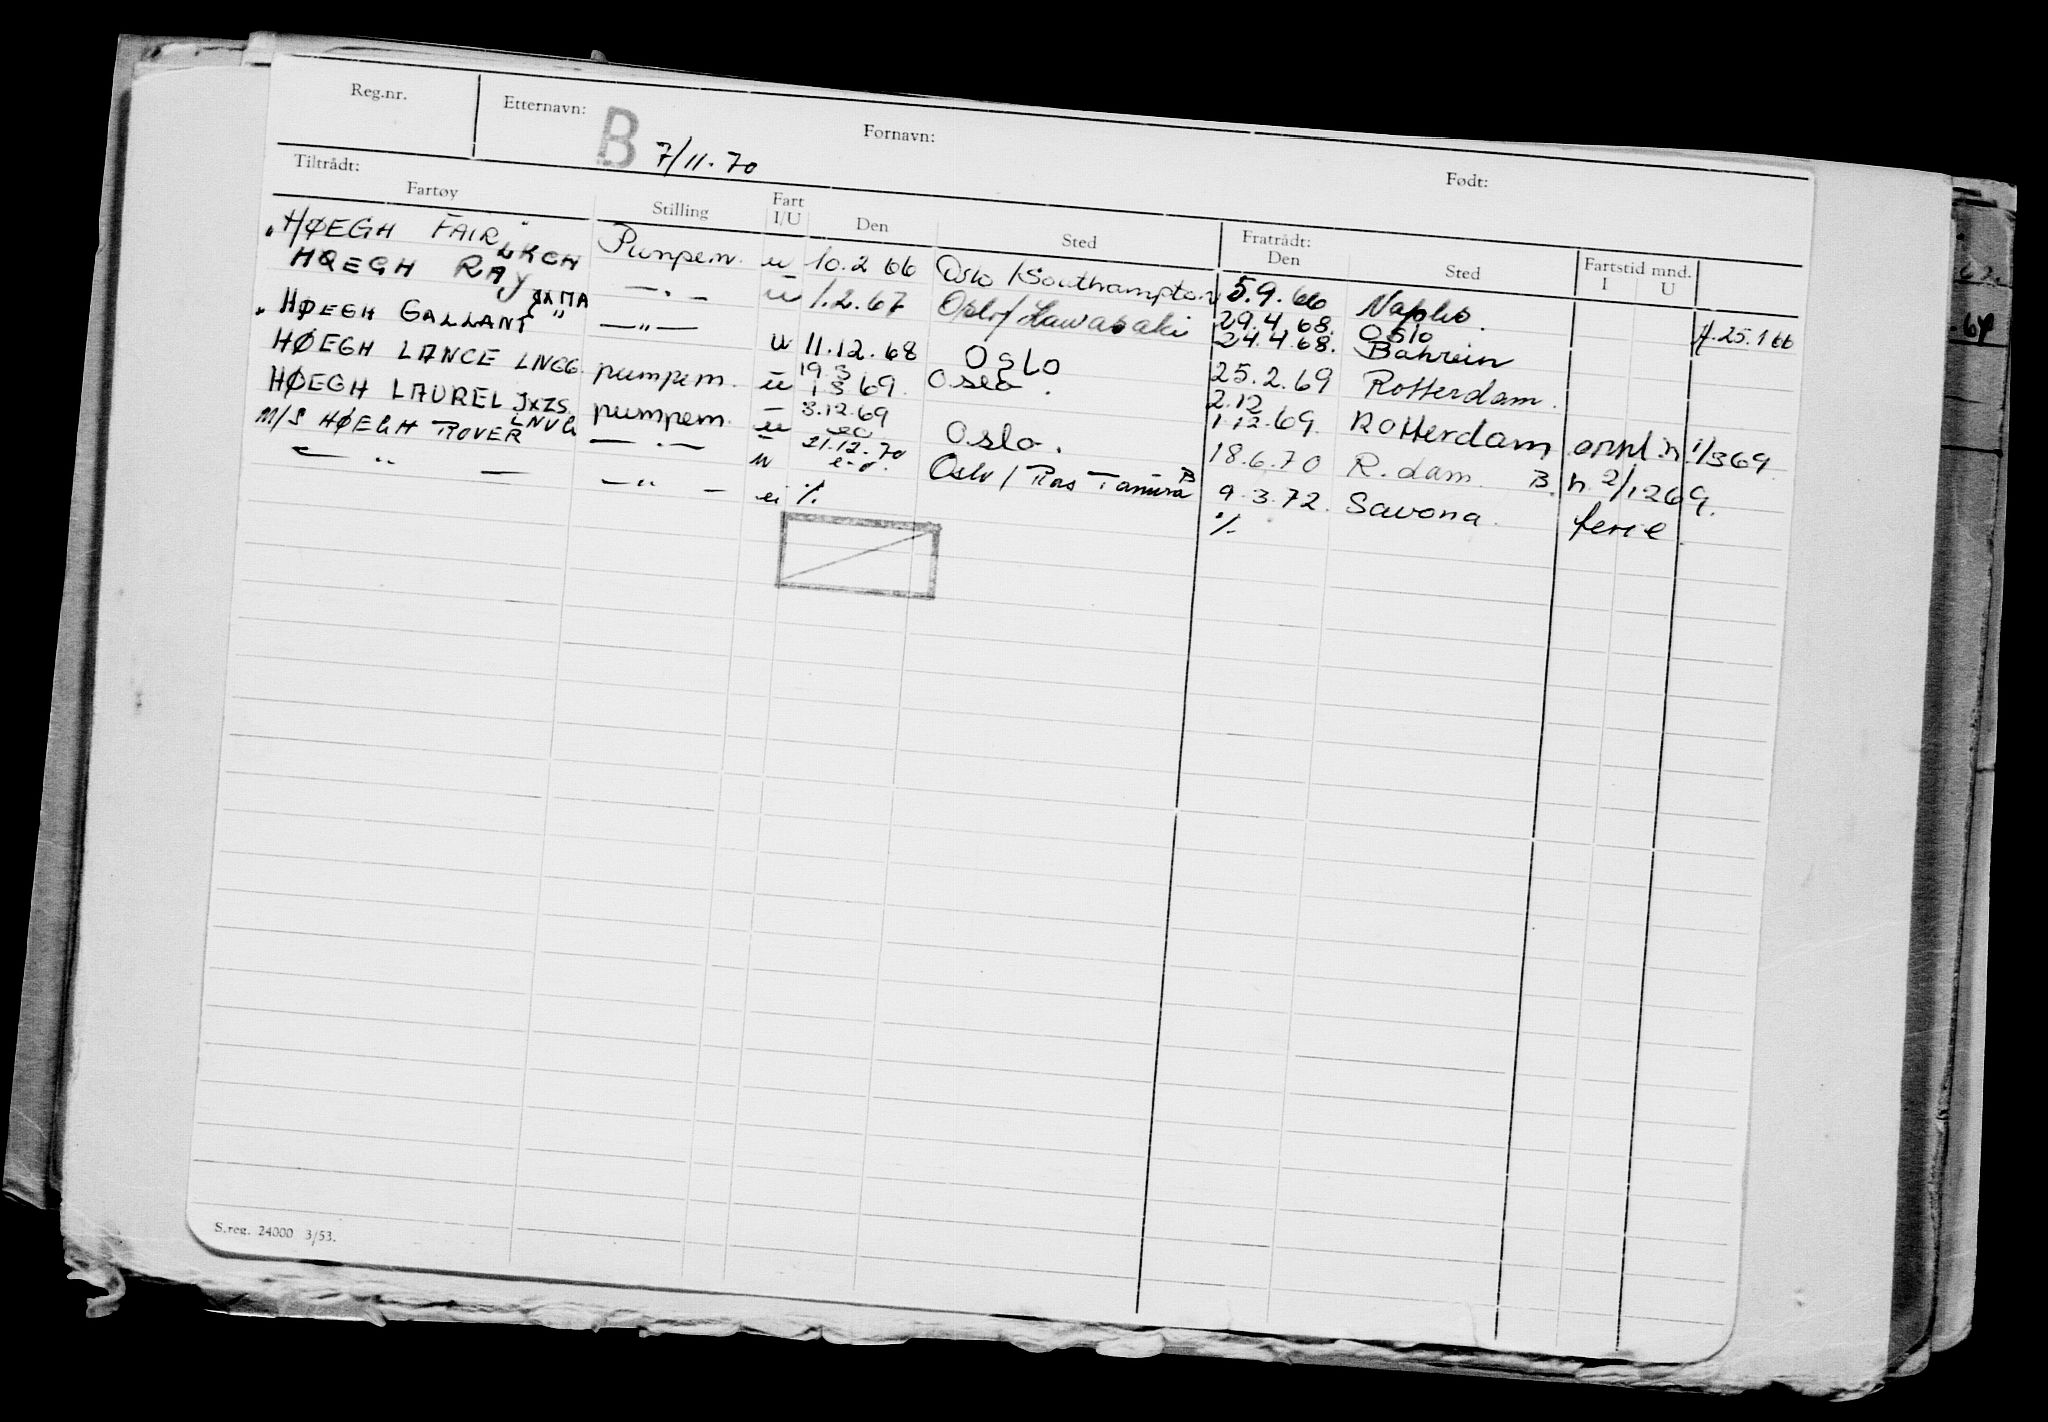 Reg.nr. Etternavn: B 7/11.70 Fornavn: Født:
Tiltrådt: Fratrådt:
Fartøy Stilling Fart I/U Den Sted Den Sted Fartstid mnd. I U
"HØEGH FAIR" LKCH Pumpem. u 10.2 66 Oslo/Southampton 5.9.66 Naples. 25.1 66
HØEGH RAY JXMA — " — u 1.2.67 Oslo/Kawasaki 29.4.68. Oslo
24.4.68. Bahrein
"HØEGH GALLANT" — " — u 11.12.68 Oslo 25.2.69 Rotterdam.
HØEGH LANCE LNGG. pumpem. u 19.3 1.3 69. Oslo. 2.12 1.12.69. Rotterdam 1/3 69
HØEGH LAUREL JXZS pumpem. u 3.12.69 Oslo. 18.6.70 R.dam. B. h. 2/12 69.
M/S HØEGH ROVER LNVG — " — u 21.12.70 Oslo/Ras Tanura B 9.3.72. Savona. ferie.
— " — — " — ei % %
S.reg. 24000 3/53.
62.
.64